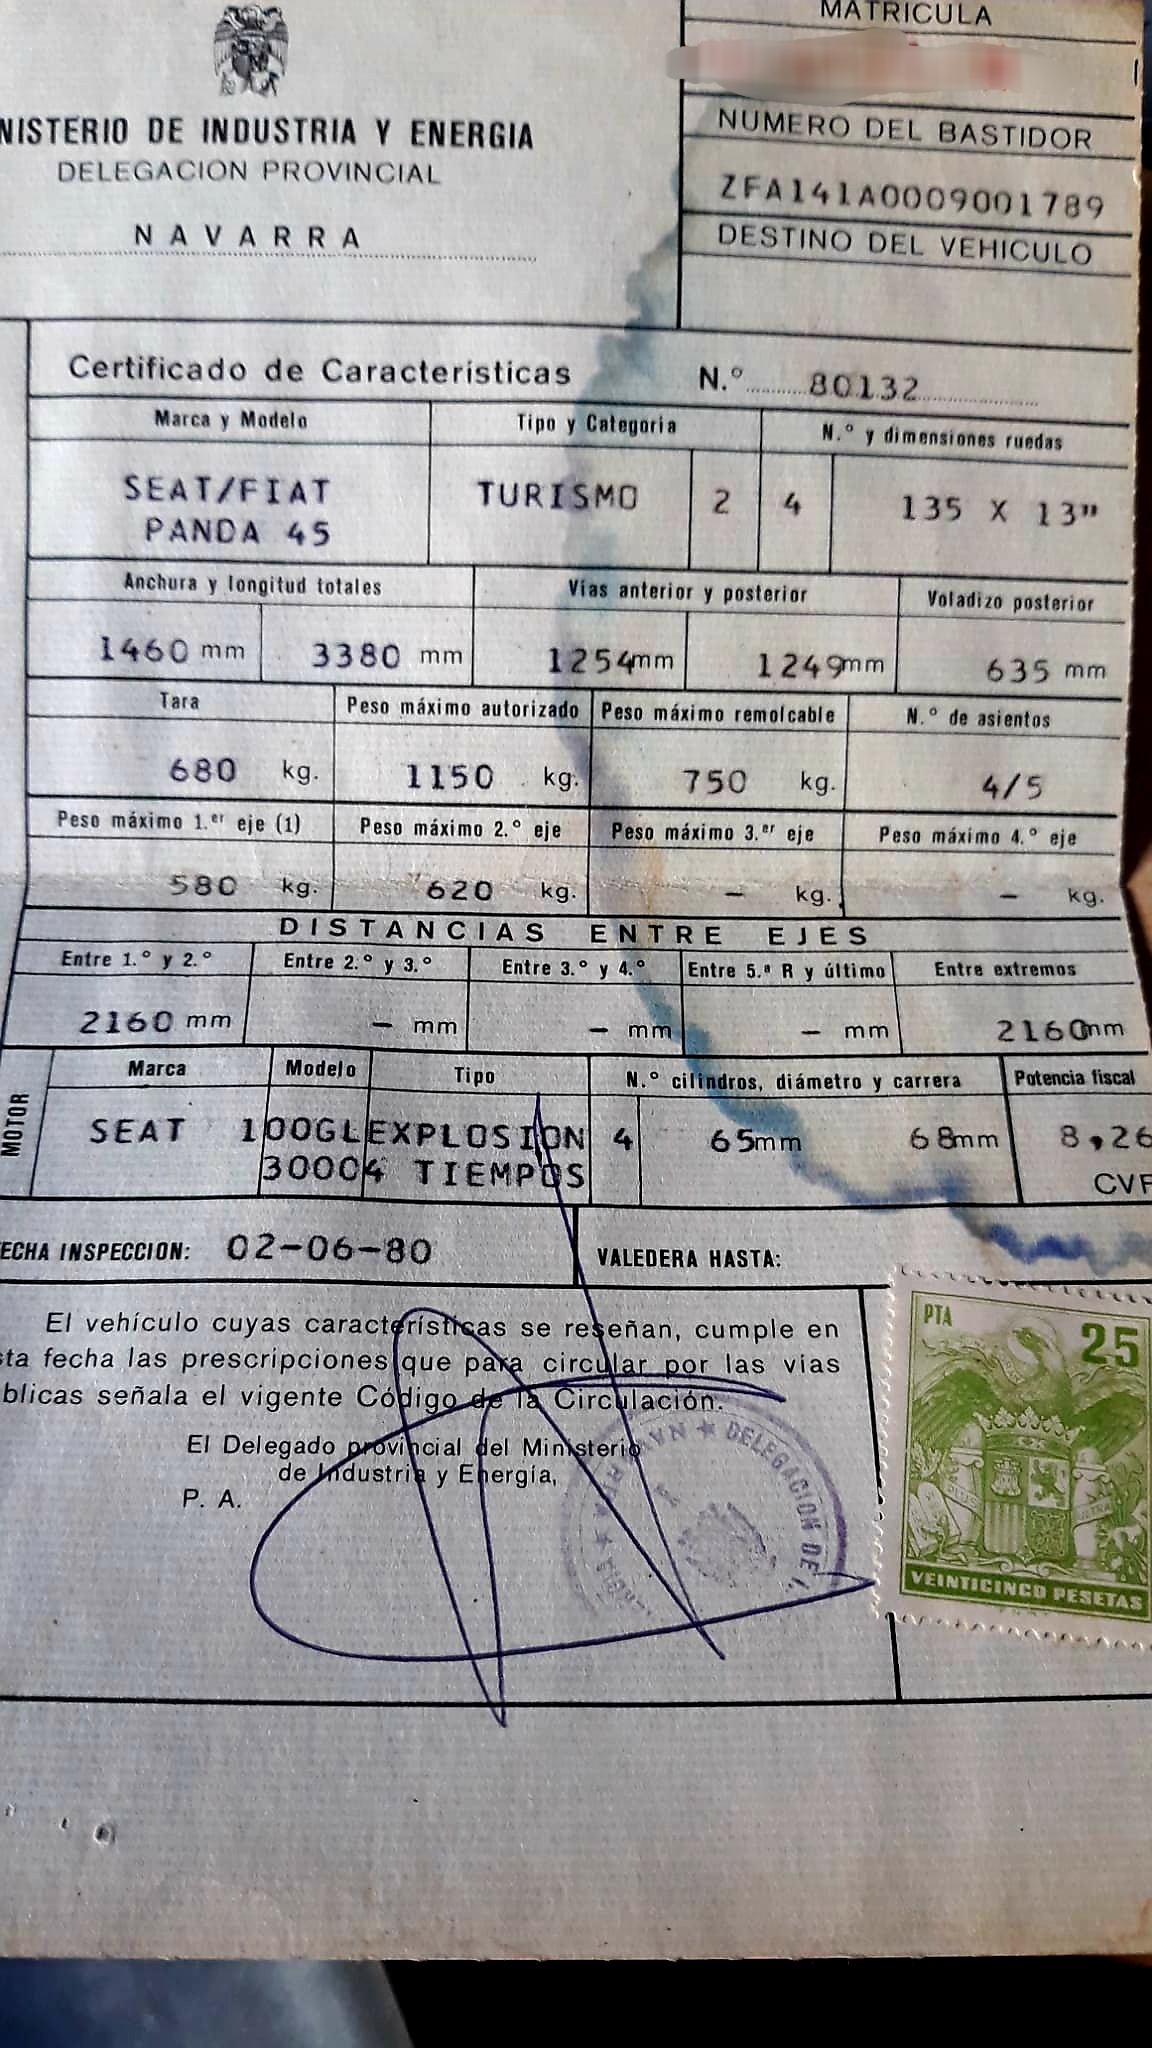 MATRICULA
NISTERIO DE INDUSTRIA Y ENERGIA
DELEGACION PROVINCIAL
NAVARRA
NUMERO DEL BASTIDOR
ZFA141A0009001789
DESTINO DEL VEHICULO
Certificado de Características N.º 80132
Marca y Modelo Tipo y Categoria N.º y dimensiones ruedas
SEAT/FIAT TURISMO 2 4 135 X 13"
PANDA 45
Anchura y longitud totales Vías anterior y posterior Voladizo posterior
1460 mm 3380 mm 1254mm 1249mm 635 mm
Tara Peso máximo autorizado Peso máximo remolcable N.º de asientos
680 kg. 1150 kg. 750 kg. 4/5
Peso máximo 1.er eje (1) Peso máximo 2.º eje Peso máximo 3.er eje Peso máximo 4.º eje
580 kg. 620 kg. - kg. - kg.
DISTANCIAS ENTRE EJES
Entre 1.º y 2.º Entre 2.º y 3.º Entre 3.º y 4.º Entre 5.ª R y último Entre extremos
2160 mm - mm - mm - mm 2160mm
MOTOR
Marca Modelo Tipo N.º cilindros, diámetro y carrera Potencia fiscal
SEAT 100GL EXPLOSION 4 65mm 68mm 8,26
3000 4 TIEMPOS CVF
ECHA INSPECCION: 02-06-80 VALEDERA HASTA:
El vehículo cuyas características se reseñan, cumple en
ta fecha las prescripciones que para circular por las vías
blicas señala el vigente Código de la Circulación.
El Delegado provincial del Ministerio
de Industria y Energía,
P. A.
DELEGACION DE
PTA 25
PLUS
VEINTICINCO PESETAS